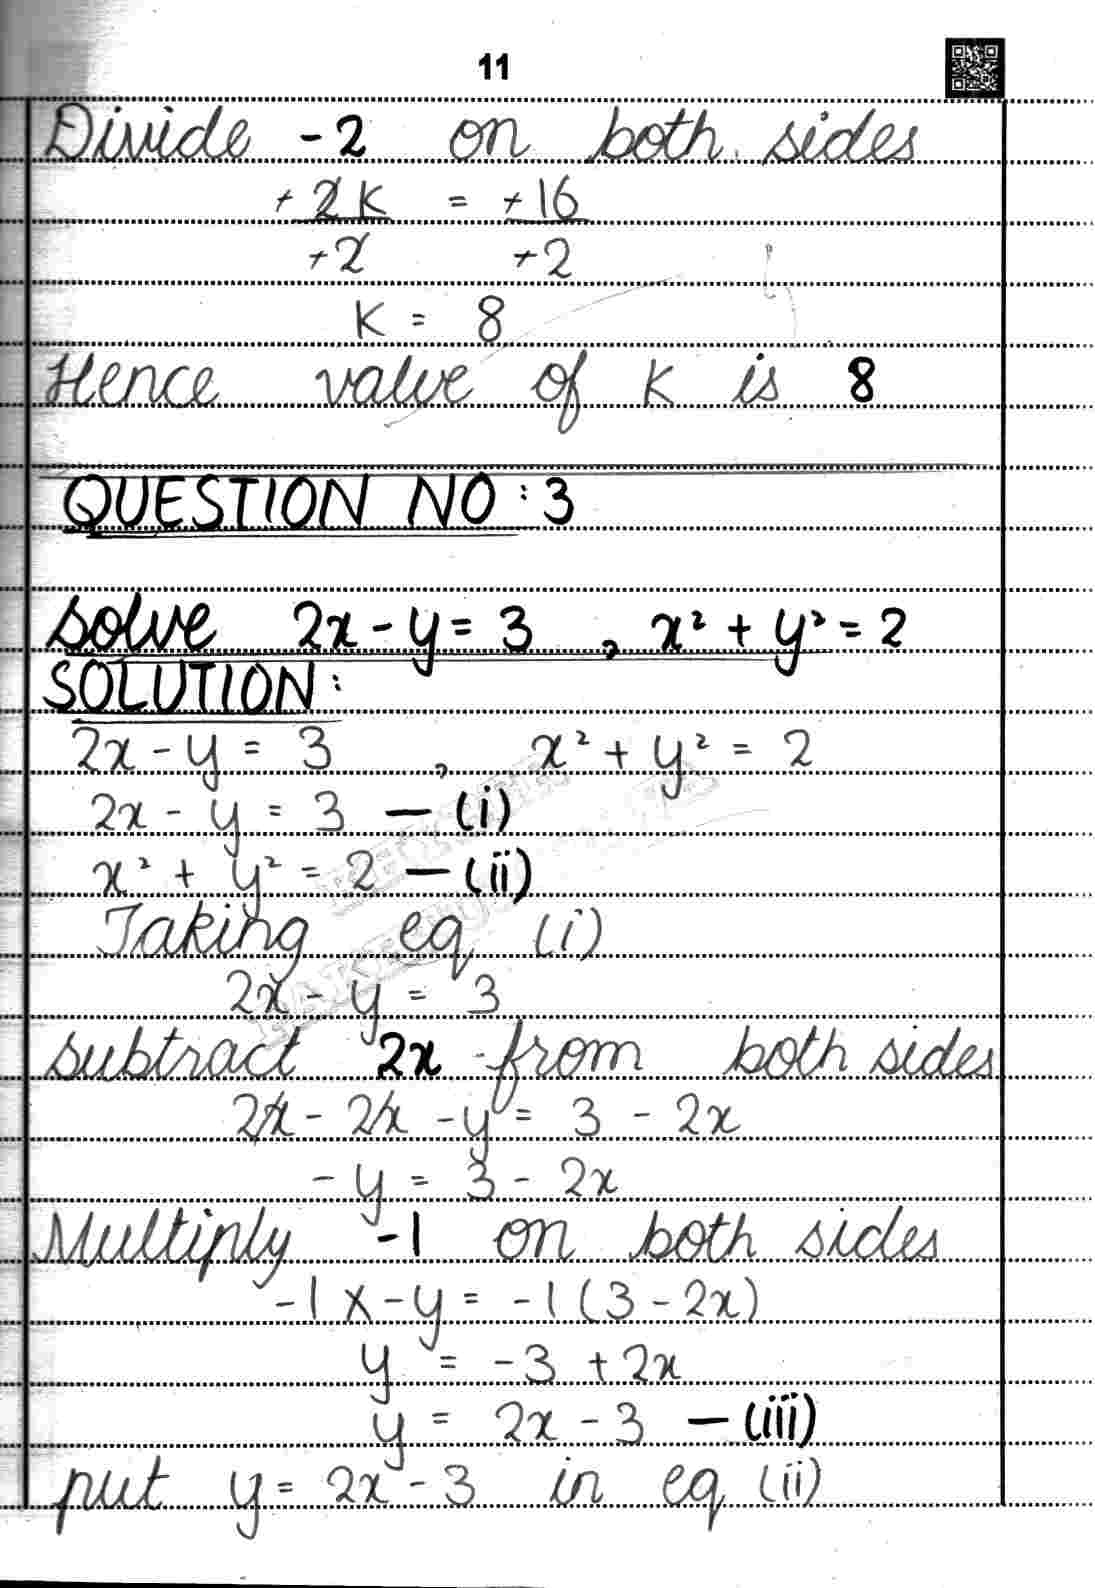 11
Divide -2 on both sides
+2K = +16
+2 +2
K = 8
Hence value of K is 8
QUESTION NO : 3
solve 2x - y = 3 , x² + y² = 2
SOLUTION:
2x - y = 3 , x² + y² = 2
2x - y = 3 — (i)
x² + y² = 2 — (ii)
Taking eq (i)
2x - y = 3
subtract 2x from both sides
2x - 2x - y = 3 - 2x
- y = 3 - 2x
Multiply -1 on both sides
-1 x - y = -1 (3 - 2x)
y = -3 + 2x
y = 2x - 3 — (iii)
put y = 2x - 3 in eq (ii)